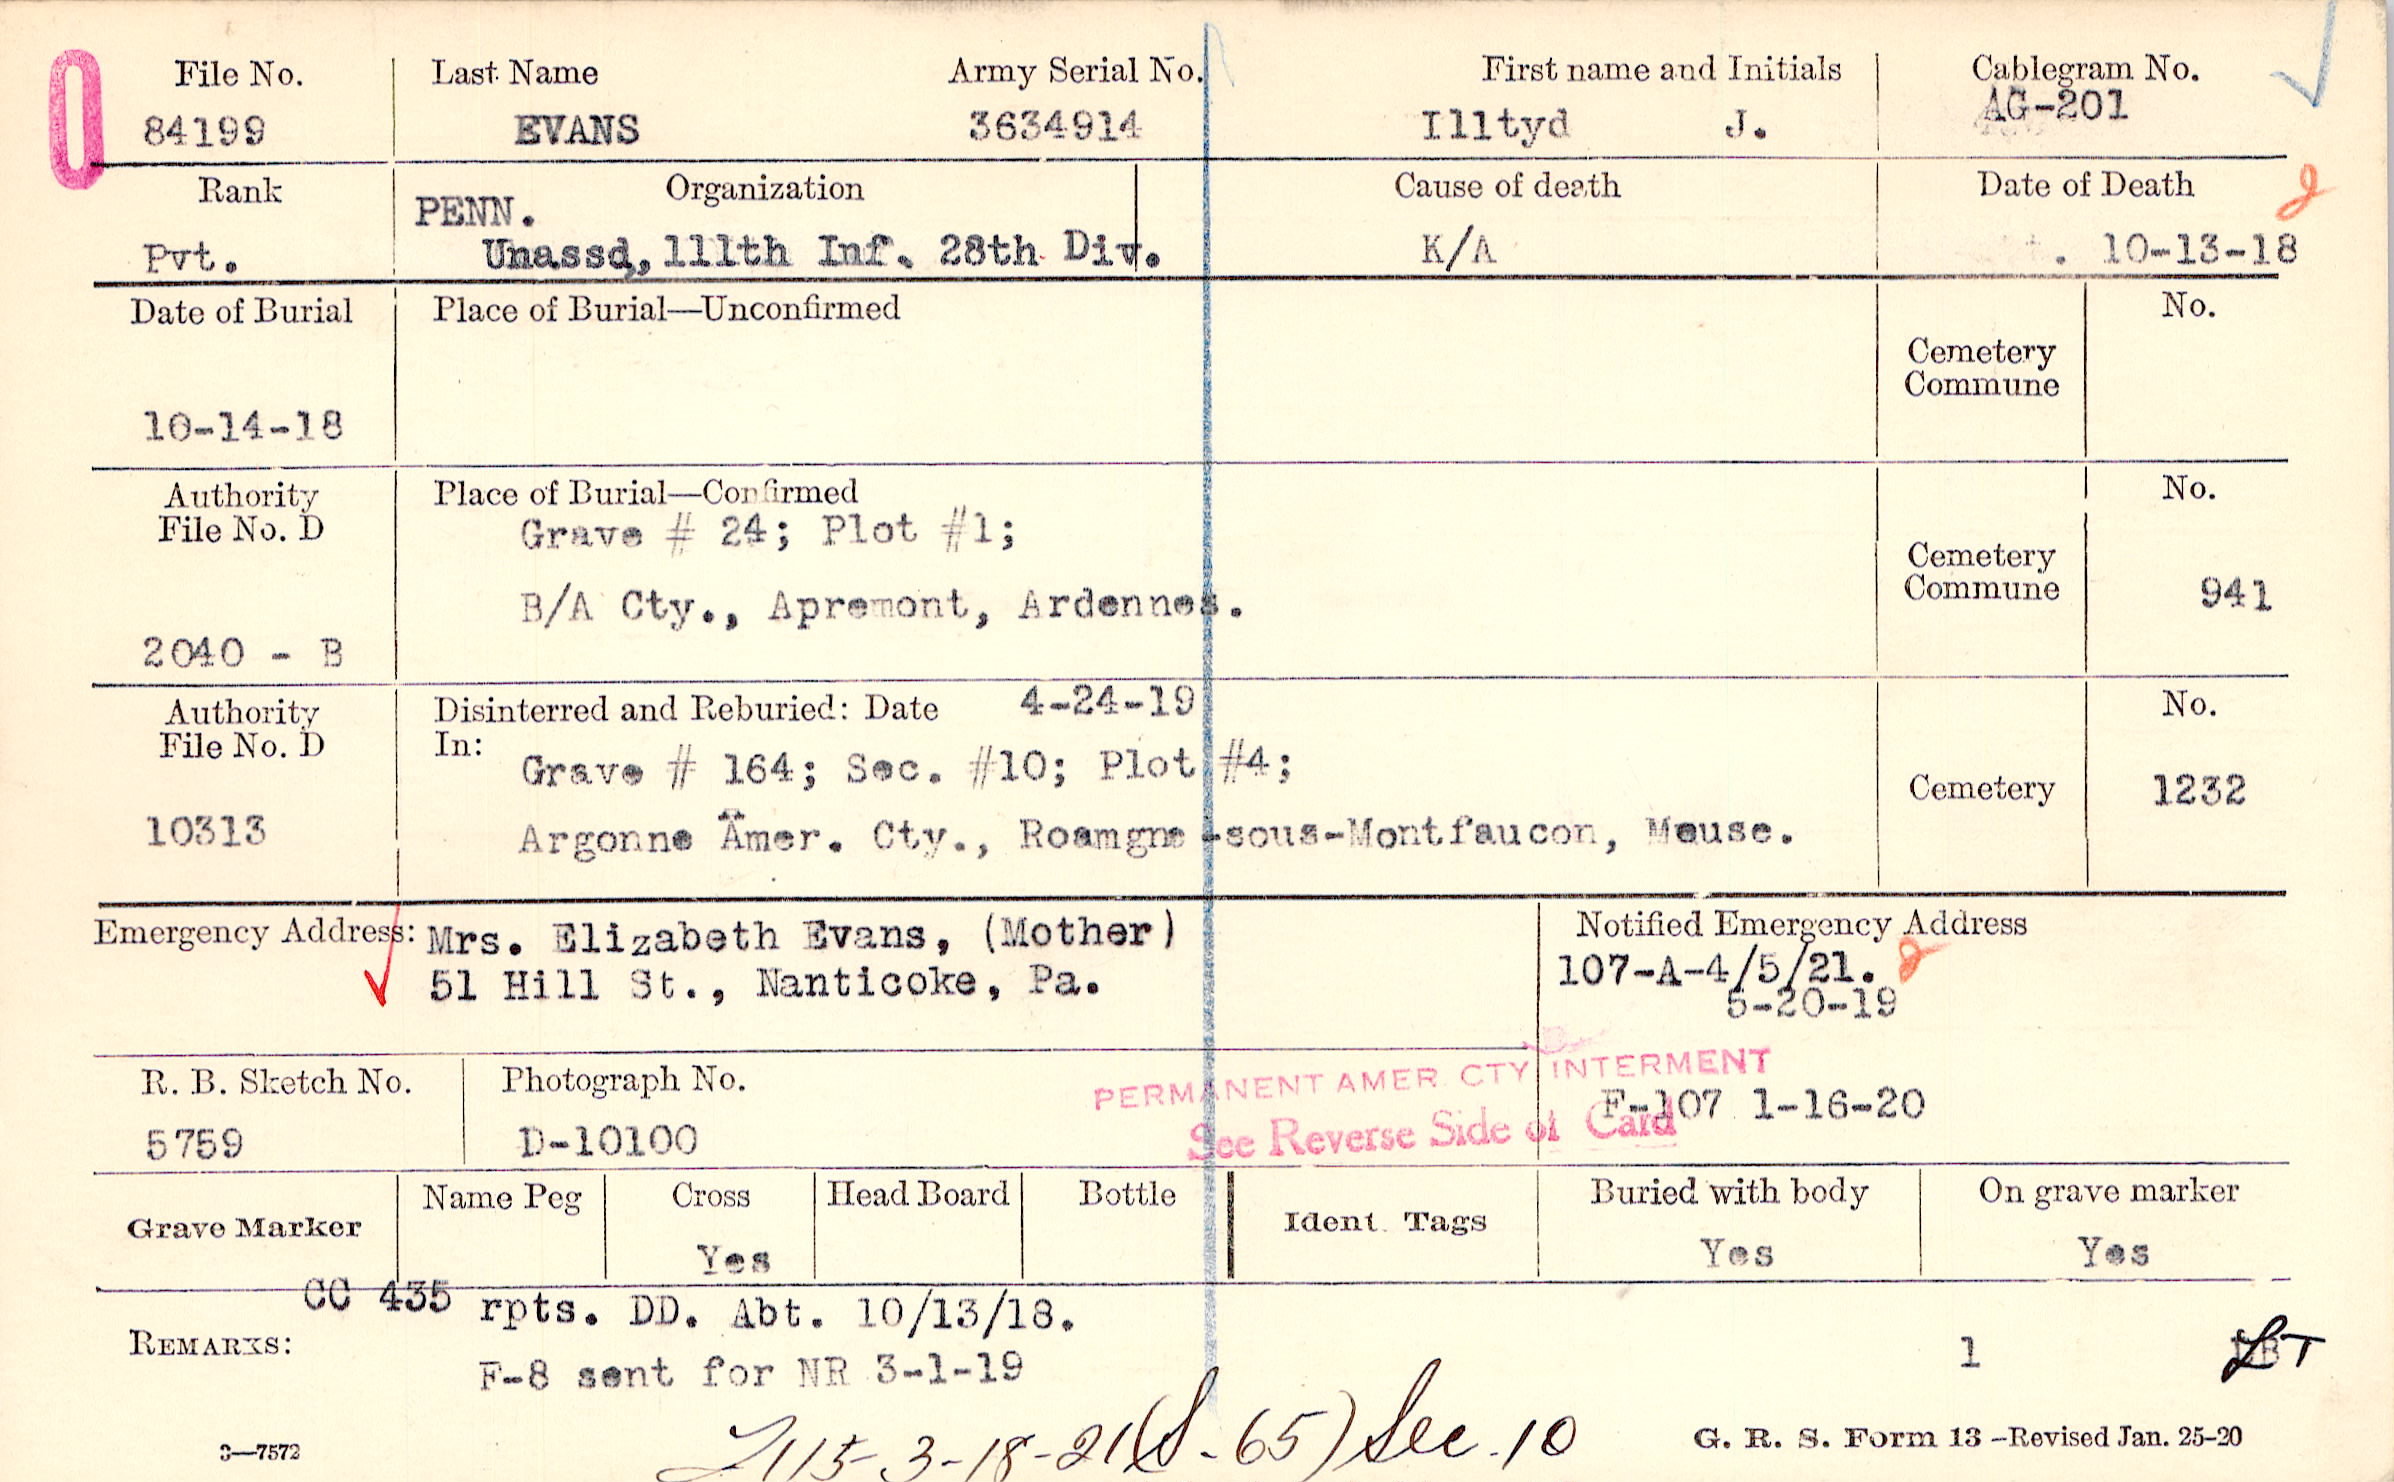 File No. Last Name Army Serial No. First name and Initials Cablegram No.
84199 EVANS 3634914 Illtyd J. AG-201
Rank Organization Cause of death Date of Death
PENN.
Pvt. Unassd, 111th Inf. 28th Div. K/A 10-13-18
Date of Burial Place of Burial—Unconfirmed No.
Cemetery
Commune
10-14-18
Authority Place of Burial—Confirmed No.
File No. D Grave # 24; Plot #1;
Cemetery
Commune 941
B/A Cty., Apremont, Ardennes.
2040 - B
Authority Disinterred and Reburied: Date 4-24-19 No.
File No. D In: Grave # 164; Sec. #10; Plot #4;
Cemetery 1232
10313 Argonne Amer. Cty., Roamgne-sous-Montfaucon, Meuse.
Emergency Address: Mrs. Elizabeth Evans, (Mother) Notified Emergency Address
51 Hill St., Nanticoke, Pa. 107-A-4/5/21.
5-20-19
PERMANENT AMER. CTY INTERMENT
R. B. Sketch No. Photograph No. F-107 1-16-20
See Reverse Side of Card
5759 D-10100
Grave Marker Name Peg Cross Head Board Bottle Ident. Tags Buried with body On grave marker
Yes Yes Yes
CC 435 rpts. DD. Abt. 10/13/18.
REMARKS: 1
F-8 sent for NR 3-1-19
3-18-21 (S-65) Sec. 10
3—7572 G. R. S. Form 13—Revised Jan. 25-20